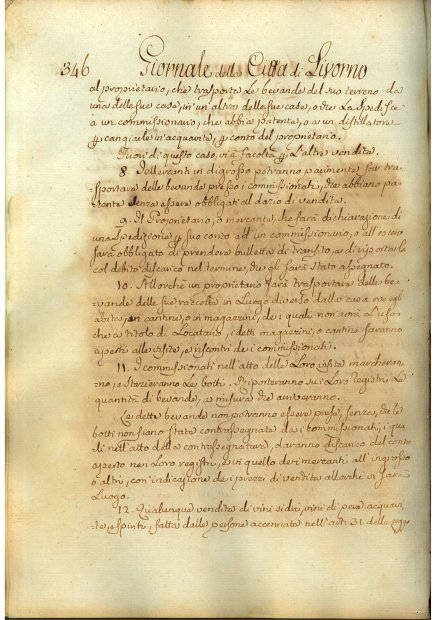 346 Giornale della Città di Livorno
al proprietario, che trasporta le bevande del suo terreno da
una delle sue case, in un'altra delle sue case, o che la spedisce
a un commissionario, che abbia patente, o a un distillatore
p cangiarle in acquavite, p conto del proprietario.
Fuori di questo caso, vi à facoltà p l'altra vendita.
8. Mercanti in digrosso potranno parimente far tra-
sportare delle bevande presso i commissionati, che abbiano pa-
tente senza essere obbligati al dazio di vendita.
9. Il Proprietario, o mercante, che farà dichiarazione di
una spedizione p suo conto ad un commissionario, o all'estero
sarà obbligato di prendere bulletta di transito, e di riportarla
col debito discarico nel termine, che gli sarà stato assegnato.
10. Allorchè un proprietario farà trasportare delle be-
vande delle sue raccolte in Luogo diverso dalla casa ove egli
abita, in cantine, o in magazzini, de i quali non avrà l'uso
che a titolo di Locatario, i detti magazzini, o cantine saranno
aperte alle visite, e riscontri de i commissionati.
11. I commissionati nell'atto delle Loro visite marcheran-
no, e stazieranno Le botti. Riporteranno sui Loro registri Le
quantità di bevande, a misura che arriveranno.
Le dette bevande non potranno essere prese, senza, che le
botti non siano state contrassegnate da i commissionati, i qua-
li nell'atto della contrassegnatura, daranno discarico del conto
aperto nei Loro registri, e in quello dei mercanti all'ingrosso
o altri, con l'indicazione de i prezzi di vendita allorchè vi sarà
Luogo.
12. Qualunque vendita di vini, sidri, vini di pera, acquavi-
te, e spiriti, fatta dalle persone accennate nell'art. 31. della legge